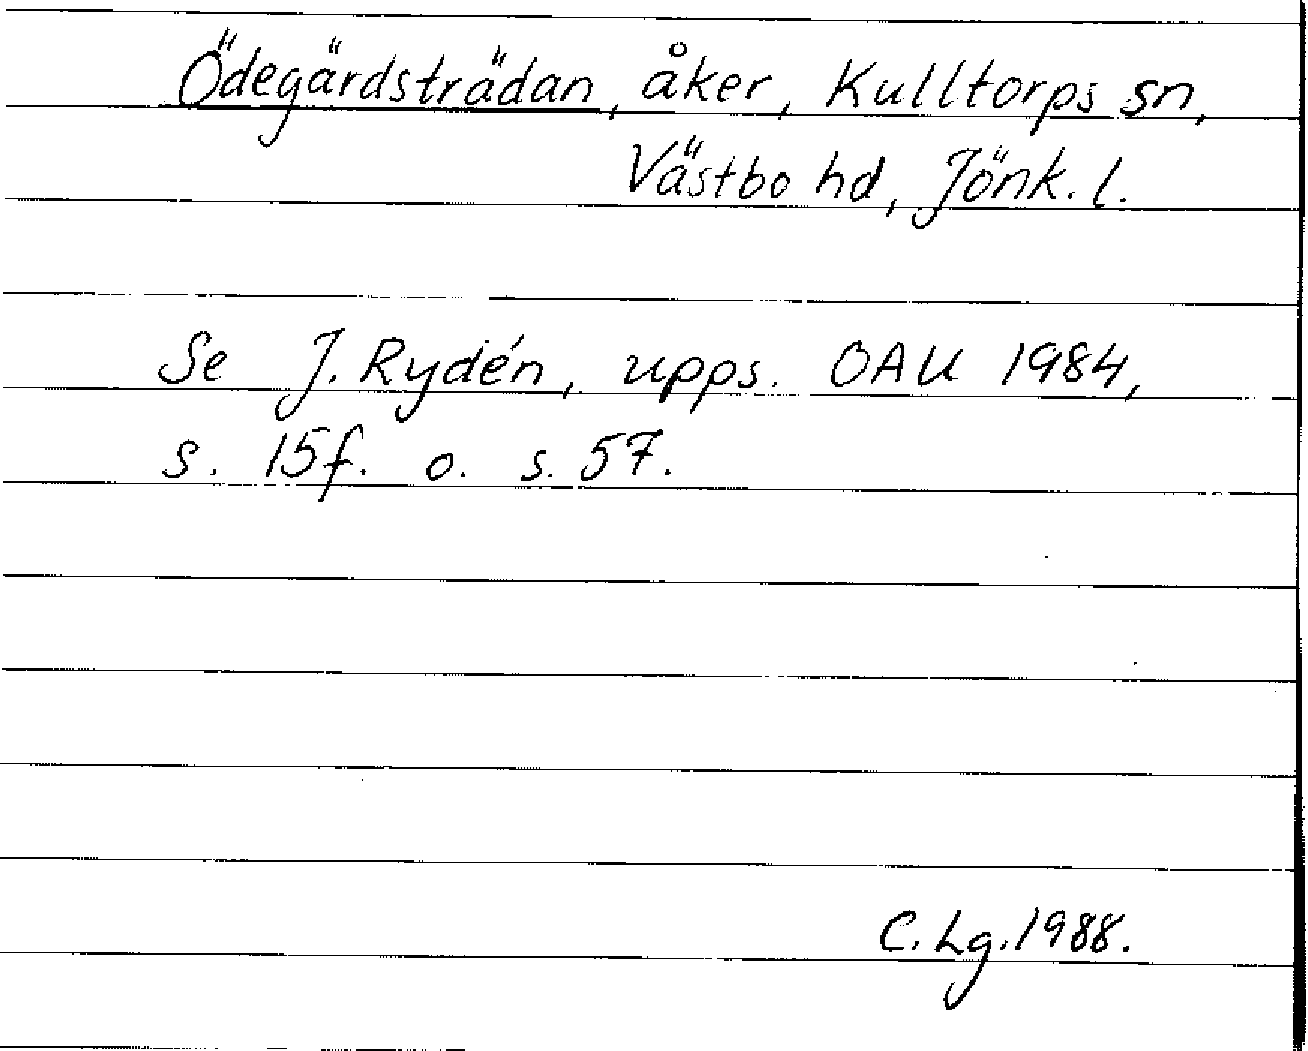 Ödegärdsträdan, åker, Kulltorps sn,
Västbo hd, Jönk. l.
Se J. Rydén, upps. OAU 1984,
s. 15f. o. s. 57.
C. Lg. 1988.